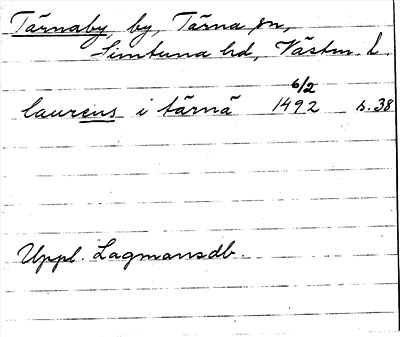 Tärnaby, by, Tärna sn,
Simtuna hd, Västm. l.
6/2
laurens i tärnä 1492 s. 38
Uppl. Lagmansdb.